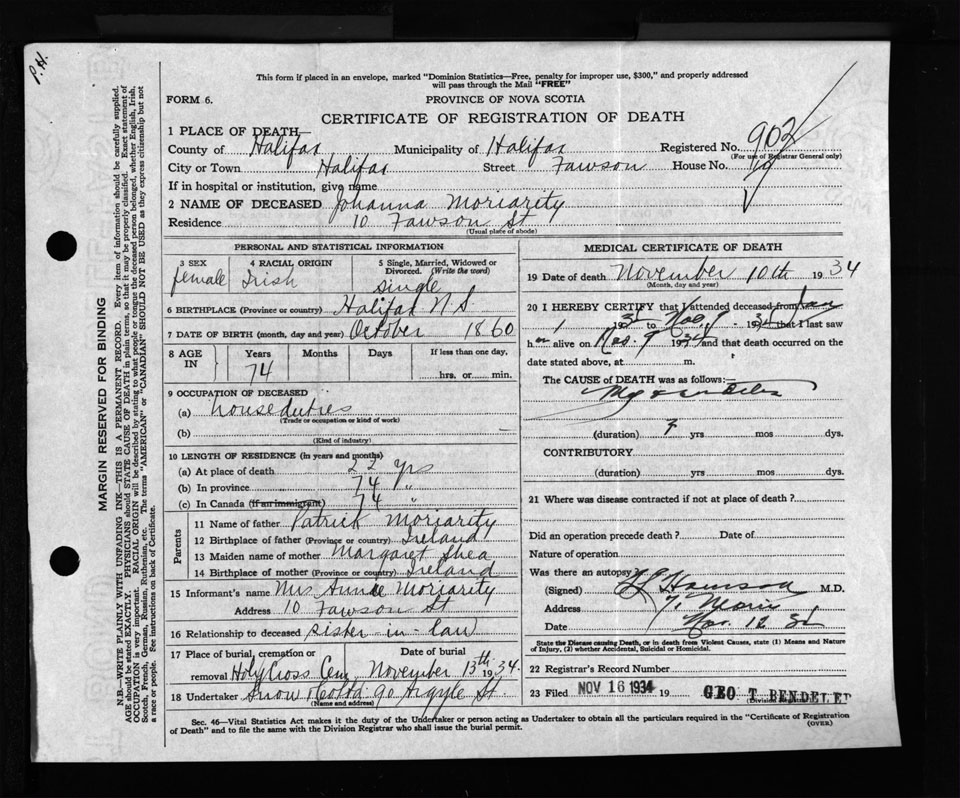 P.H.
This form if placed in an envelope, marked "Dominion Statistics—Free, penalty for improper use, $300," and properly addressed
will pass through the Mail "FREE"
FORM 6.
PROVINCE OF NOVA SCOTIA
CERTIFICATE OF REGISTRATION OF DEATH
1 PLACE OF DEATH—
County of Halifax Municipality of Halifax Registered No. 902
(For use of Registrar General only)
City or Town Halifax Street Fawson House No. 10
If in hospital or institution, give name
2 NAME OF DECEASED Johanna Moriarity
Residence 10 Fawson St
(Usual place of abode)
PERSONAL AND STATISTICAL INFORMATION
3 SEX 4 RACIAL ORIGIN 5 Single, Married, Widowed or
Divorced. (Write the word)
female Irish single
6 BIRTHPLACE (Province or country) Halifax N.S
7 DATE OF BIRTH (month, day and year) October 1860
8 AGE IN Years Months Days If less than one day,
74 hrs. or min.
9 OCCUPATION OF DECEASED
(a) house duties
(Trade or occupation or kind of work)
(b)
(Kind of industry)
10 LENGTH OF RESIDENCE (in years and months)
(a) At place of death 22 yrs
(b) In province 74 "
(c) In Canada (if an immigrant) 74 "
Parents
11 Name of father Patrick Moriarity
12 Birthplace of father (Province or country) Ireland
13 Maiden name of mother Margaret Shea
14 Birthplace of mother (Province or country) Ireland
15 Informant's name Mrs Annie Moriarity
Address 10 Fawson St
16 Relationship to deceased sister-in-law
17 Place of burial, cremation or Date of burial
removal Holy Cross Cem November 13th 1934.
18 Undertaker Snow & Co Ltd 90 Argyle St.
(Name and address)
MEDICAL CERTIFICATE OF DEATH
19 Date of death November 10th 1934
(Month, day and year)
20 I HEREBY CERTIFY that I attended deceased from Jan
1 193 to Nov 9 - 34 that I last saw
h er alive on Nov. 9 1934 and that death occurred on the
date stated above, at m.
The CAUSE OF DEATH was as follows:—
(duration) yrs mos dys.
CONTRIBUTORY
(duration) yrs mos dys.
21 Where was disease contracted if not at place of death?
Did an operation precede death? Date of
Nature of operation
Was there an autopsy
(Signed) M.D.
Address Morris
Date Nov. 12
State the Disease causing Death, or in death from Violent Causes, state (1) Means and Nature
of Injury, (2) whether Accidental, Suicidal or Homicidal.
22 Registrar's Record Number
23 Filed NOV 16 1934 GEO T. BENDELEF
(Division Registrar)
Sec. 46—Vital Statistics Act makes it the duty of the Undertaker or person acting as Undertaker to obtain all the particulars required in the "Certificate of Registration
of Death" and to file the same with the Division Registrar who shall issue the burial permit.
(OVER)
MARGIN RESERVED FOR BINDING
N.B.—WRITE PLAINLY WITH UNFADING INK—THIS IS A PERMANENT RECORD. Every item of information should be carefully supplied.
AGE should be stated EXACTLY. PHYSICIANS should STATE CAUSE OF DEATH in plain terms, so that it may be properly classified. Exact statement of
OCCUPATION is very important. RACIAL ORIGIN will be described by stating to what people or tongue the deceased person belonged, whether English, Irish,
Scotch, French, German, Russian, Ruthenian, etc. The terms "AMERICAN" or "CANADIAN" SHOULD NOT BE USED as they express citizenship but not
a race or people. See instructions on back of Certificate.